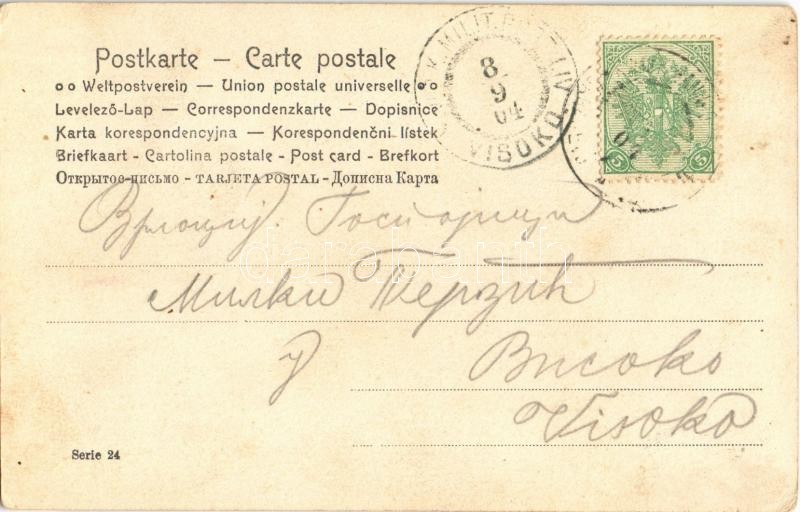 Postkarte — Carte postale
Weltpostverein — Union postale universelle
Levelező-Lap — Correspondenzkarte — Dopisnice
Karta korespondencyjna — Korespondenční lístek
Briefkaart - Cartolina postale - Post card - Brefkort
Открытое-письмо - TARJETA POSTAL - Дописна Карта
MILIT. POST
8
9
04
VISOKO
5 5
Госпоџици
Милки Терзић
у Високо
Visoko
Serie 24
darabanth